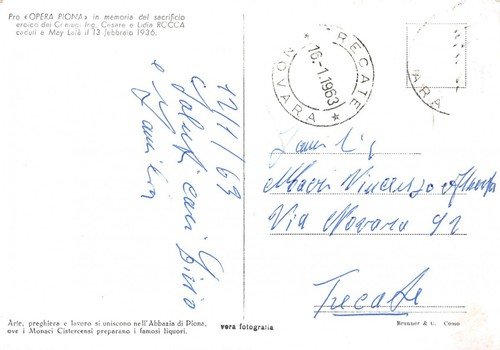 Pro «OPERA PIONA» in memoria del sacrificio
eroico dei Coniugi Ing. Cesare e Lidia ROCCA
caduti a May Lalà il 13 febbraio 1936.
12/1/63
Saluti cari
e
Famiglia
Arte, preghiera e lavoro si uniscono nell'Abbazia di Piona,
ove i Monaci Cistercensi preparano i famosi liquori.
vera fotografia
TRECATE
16.-1.1963
* NOVARA *
ARA
Famiglia
Vincenzo
Via Novara 92
Trecate
Brunner & C. Como